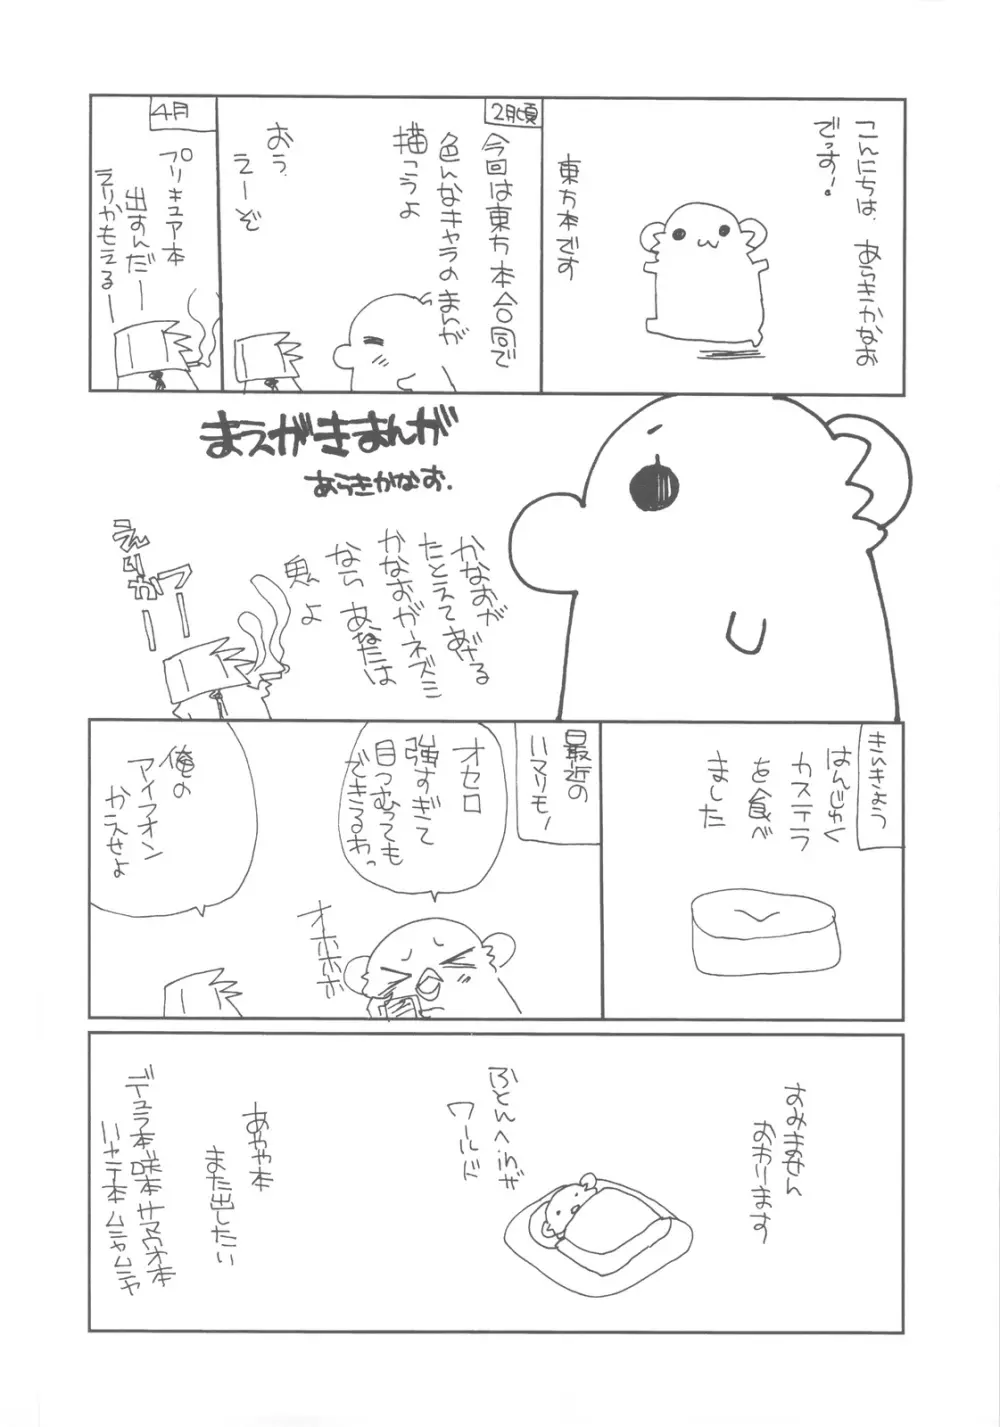 こんにちは、あらきかなお
でっす!
東方本です
2月頃
今回は東方本合同で
色んなキャラのまんが
描こうよ
おう、
えーぞ
4月
プリキュア本
出すんだー
えりかもえるー
まえがきまんが
あらきかなお.
かなおが
たとえてあげる
かなおがネズミ
なら あなたは
魚よ
えりかっーー
きんきょう
はんじゅく
カステラ
を食べ
ました
最近の
ハマリモノ
オセロ
強すぎて
目つむっても
できるわっ
オホホホ
俺の
アイフォン
かえせよ
すみません
おわります
ふとんへinザ
ワールド
あやや本
また出したい
デュラ本咲本サマウオ本
ハヤテ本ムニャムニャ